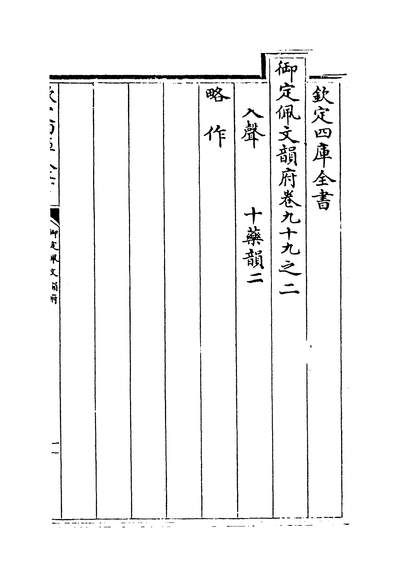 欽定四庫全書
御定佩文韻府卷九十九之二
入聲 十藥韻二
略 作
御定佩文韻府